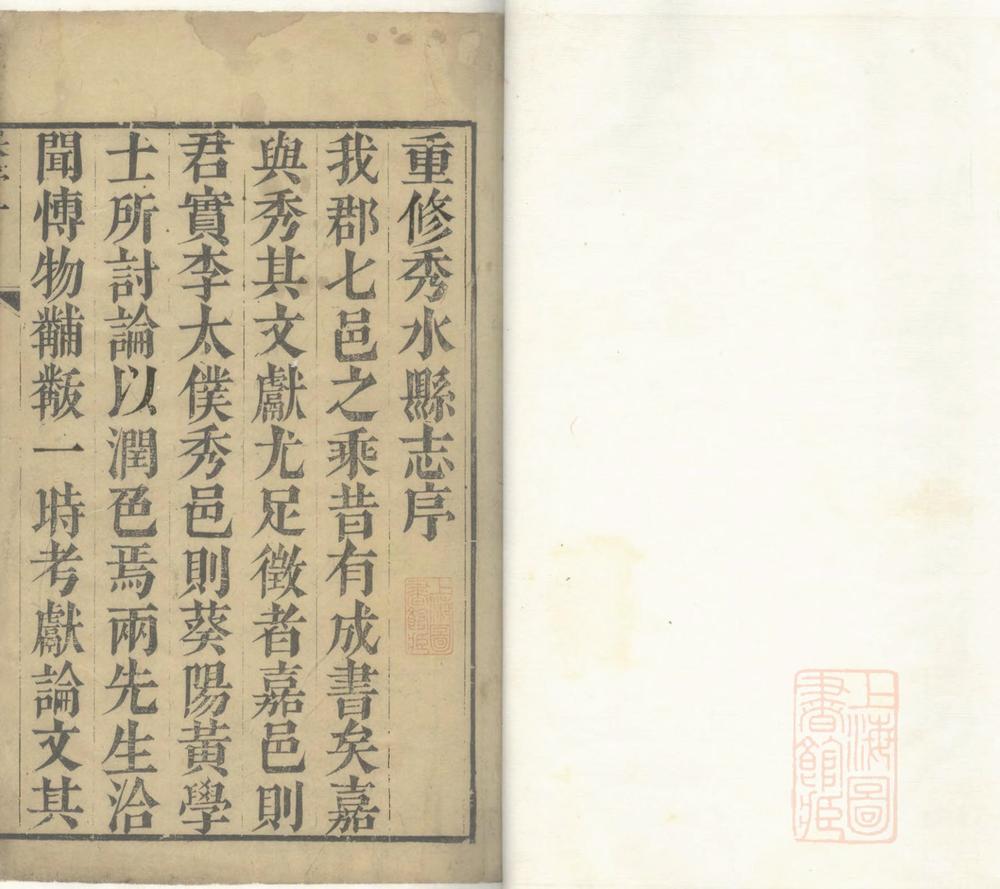 重修秀水縣志序
我郡七邑之乘昔有成書矣嘉
與秀其文獻尤足徵者嘉邑則
君實李太僕秀邑則葵陽黃學
士所討論以潤色焉兩先生洽
聞愽物黼黻一時考獻論文其
上海圖
書館藏
上海圖
書館藏